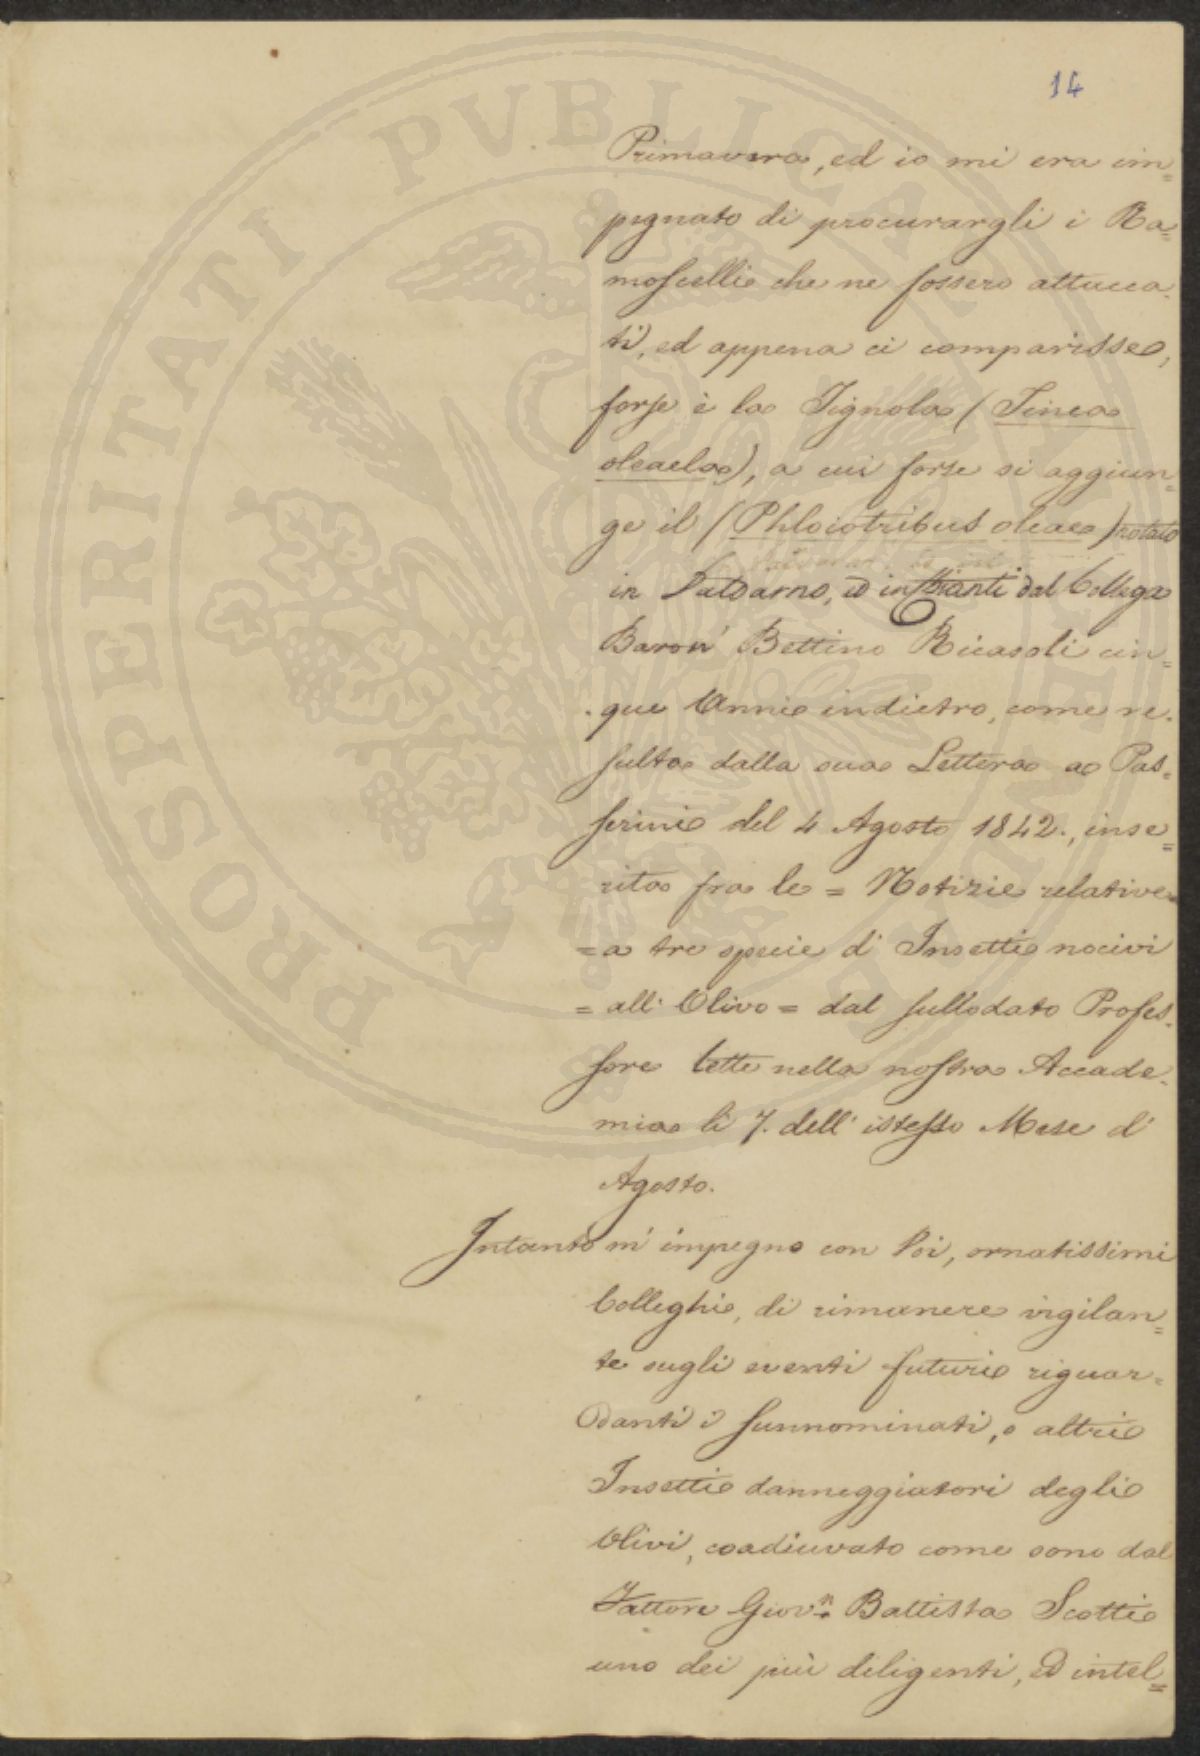 14
PROSPERITATI PVBLICAE
Primavera, ed io mi era im=
pegnato di procurargli i Ra=
moscelli che ne fossero attacca=
ti, ed appena ci comparisse,
forse è la Tignola (Tinea
oleaela), a cui forse si aggiun=
ge il (Phloiotribus oleae) notato
in Valdarno, ed in Chianti dal Collega
Baron' Bettino Ricasoli cin=
que Anni indietro, come re=
sulta dalla sua Lettera a Pas=
serini del 4 Agosto 1842., inse=
rita fra le = Notizie relative
= a tre specie d' Insetti nocivi
= all' Olivo = dal sullodato Profes=
sore lette nella nostra Accade=
mia li 7. dell' istesso Mese d'
Agosto.
Intanto m' impegno con Voi, ornatissimi
Colleghi, di rimanere vigilan=
te sugli eventi futuri riguar=
danti i sunnominati, o altri
Insetti danneggiatori degli
Olivi, coadiuvato come sono dal
Fattore Giov.n Battista Scotti
uno dei più diligenti, ed intel=